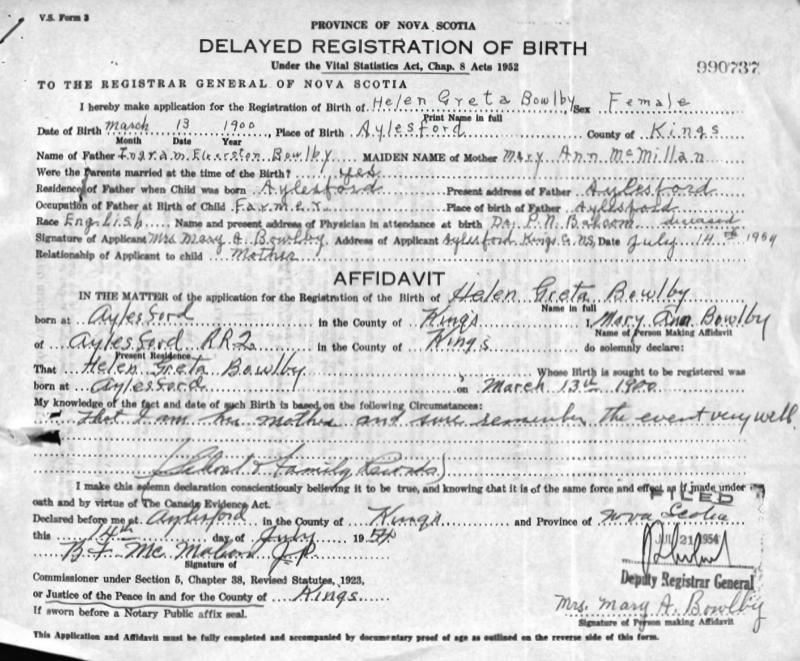 V.S. Form 3
PROVINCE OF NOVA SCOTIA
DELAYED REGISTRATION OF BIRTH
Under the Vital Statistics Act, Chap. 8 Acts 1952
990737
TO THE REGISTRAR GENERAL OF NOVA SCOTIA
I hereby make application for the Registration of Birth of Helen Greta Bowlby Sex Female
Print Name in full
Date of Birth March 13 1900 Place of Birth Aylesford County of Kings
Month Date Year
Name of Father Ingram Bowlby MAIDEN NAME of Mother Mary Ann McMillan
Were the Parents married at the time of the Birth? yes
Residence of Father when Child was born Aylesford Present address of Father Aylesford
Occupation of Father at Birth of Child Farmer Place of birth of Father Aylesford
Race English Name and present address of Physician in attendance at birth Dr. P.N. Balcom deceased
Signature of Applicant Mrs Mary A. Bowlby Address of Applicant Aylesford Kings Co NS, Date July 14th 1954
Relationship of Applicant to child Mother
AFFIDAVIT
IN THE MATTER of the application for the Registration of the Birth of Helen Greta Bowlby
Name in full
born at Aylesford in the County of Kings I, Mary Ann Bowlby
Name of Person Making Affidavit
of Aylesford RR2 in the County of Kings do solemnly declare:
Present Residence
That Helen Greta Bowlby Whose Birth is sought to be registered was
born at Aylesford on March 13th 1900
My knowledge of the fact and date of such Birth is based on the following Circumstances:
That I am her mother and sure remember the event very well
(School & Family Records)
I make this solemn declaration conscientiously believing it to be true, and knowing that it is of the same force and effect as if made under
oath and by virtue of The Canada Evidence Act.
FILED
Declared before me at Aylesford in the County of Kings and Province of Nova Scotia
this 14th day of July 1954
JUL 21 1954
B F Mc Mahon J.P.
Signature of
Deputy Registrar General
Commissioner under Section 5, Chapter 38, Revised Statutes, 1923,
or Justice of the Peace in and for the County of Kings
Mrs. Mary A. Bowlby
Signature of Person making Affidavit
If sworn before a Notary Public affix seal.
This Application and Affidavit must be fully completed and accompanied by documentary proof of age as outlined on the reverse side of this form.